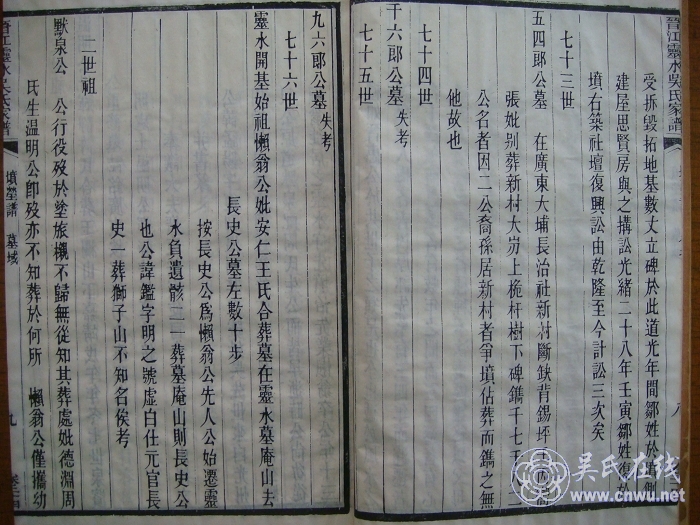 晉江靈水吳氏家譜
受拆毀拓地基數丈立碑於此道光年間鄒姓於墳側
建屋思賢房與之搆訟光緒二十八年壬寅鄒姓復於
墳右築社壇復興訟由乾隆至今計訟三次矣
七十三世
五四郎公墓 在廣東大埔長治社新村斷缺背錫坪
張妣別葬新村大岃上桅杆樹下碑鐫千七
公名者因二公裔孫居新村者爭墳佔葬而鐫之無
他故也
七十四世
千六郎公墓 失考
七十五世
九六郎公墓 失考
七十六世
靈水開基始祖懶翁公妣安仁王氏合葬墓在靈水墓庵山去
長史公墓左數十步
按長史公為懶翁公先人公始遷靈
水負遺骸二一葬墓庵山則長史公
也公諱鑑字明之號虛白仕元官長
史一葬獅子山不知名俟考
二世祖
默泉公 公行役歿於塗旅櫬不歸無從知其葬處妣德淵周
氏生温明公卽歿亦不知葬於何所 懶翁公僅攜幼
晉江靈水吳氏家譜
墳塋譜 墓域
九
吳氏在线
www.cnwu.net